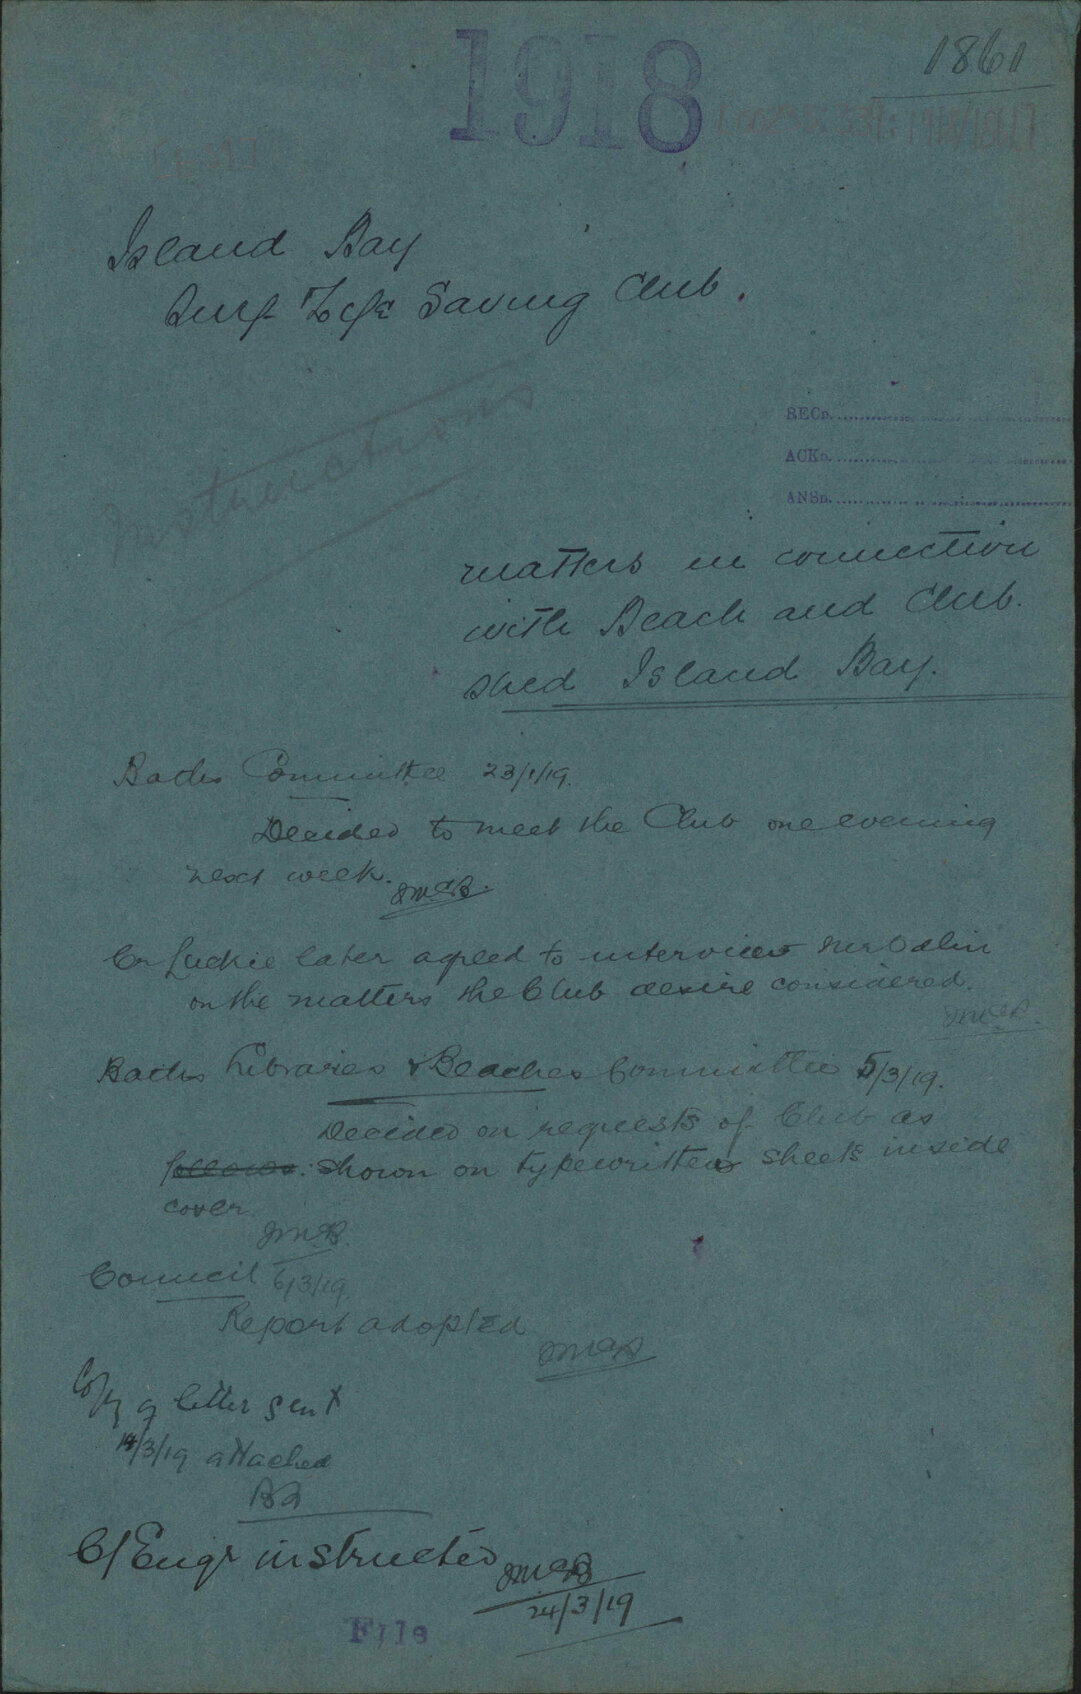 1918
1861
Island Bay
Surf Life Saving Club.
RECD.
ACKD.
ANSD.
matters in connection
with Beach and Club.
shed Island Bay.
Baths Committee 23/1/19.
Decided to meet the Club one evening
next week.
JMcB.
Cr Luckie later agreed to interview
on the matters the Club desire considered.
JMcB.
Baths Libraries & Beaches Committee 5/3/19.
Decided on requests of Club as
follows: shown on typewritten sheets inside
cover
JMcB.
Council 6/3/19
Report adopted
JMcB
Copy of letter sent
14/3/19 attached
C/Engr instructed
JMcB
24/3/19
File